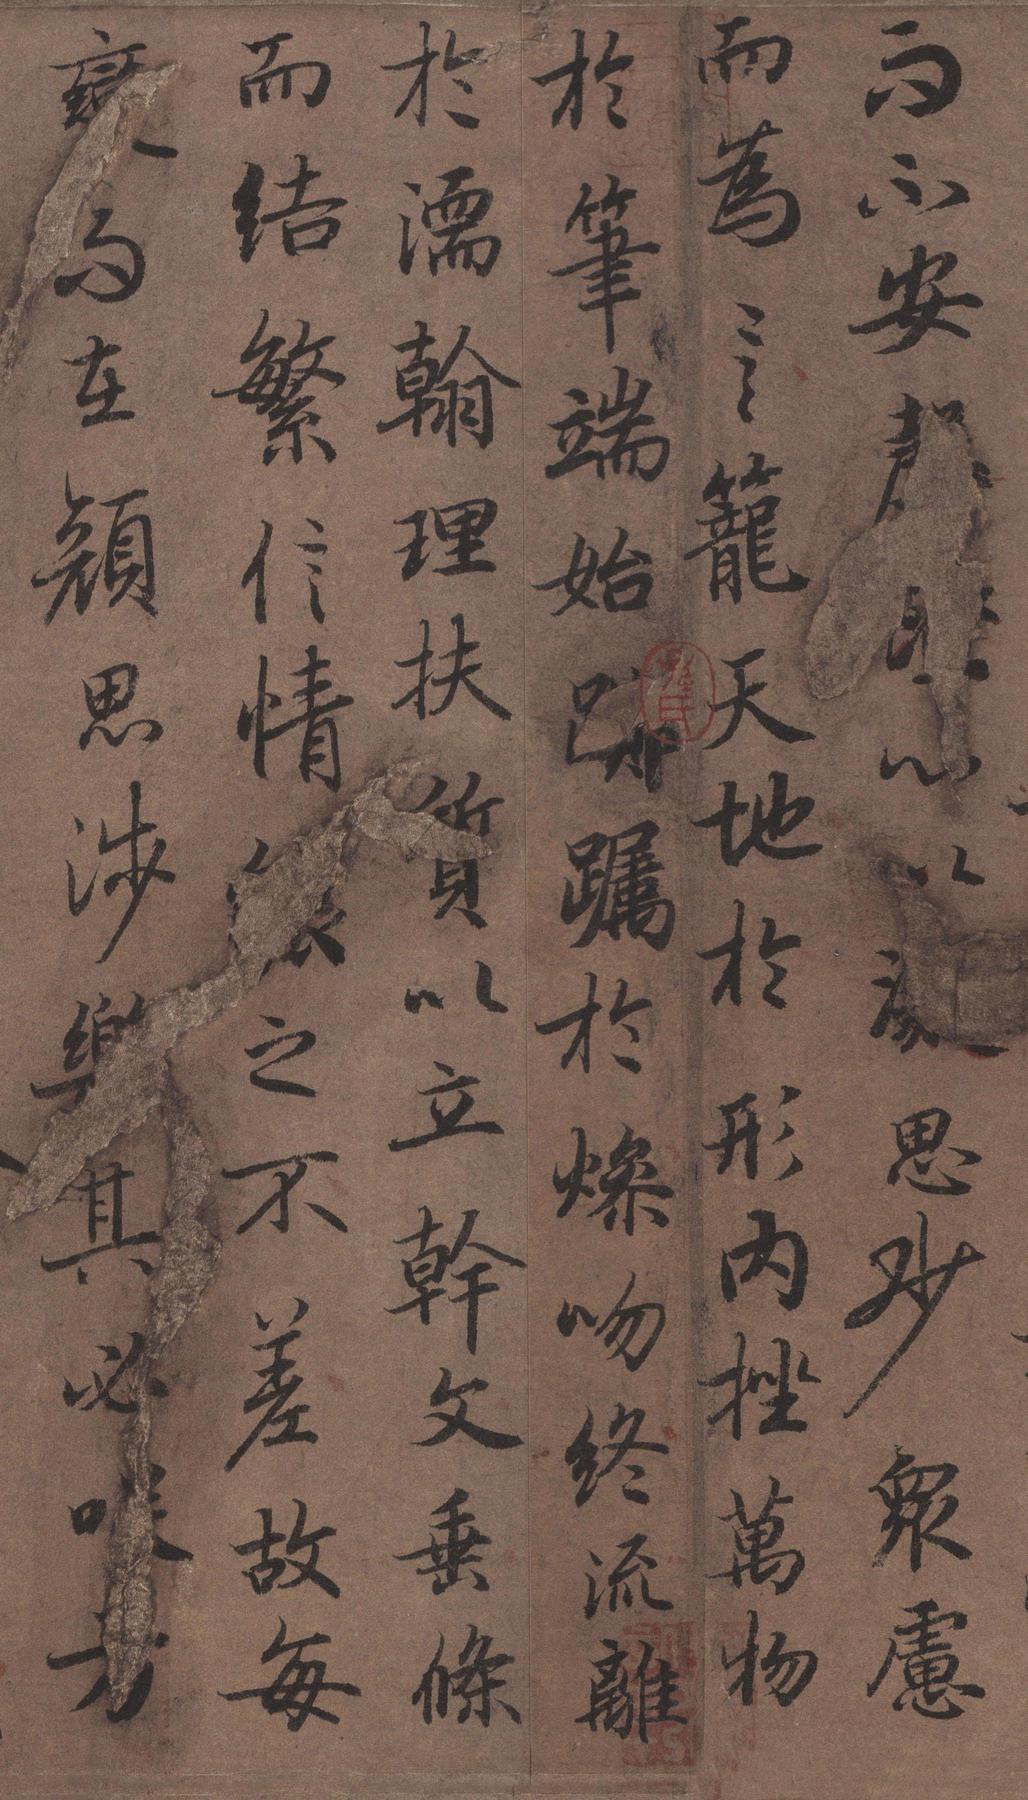 而不安心以凝思眇眾慮
而為言籠天地於形內挫萬物
於筆端始躑躅於燥吻終流離
於濡翰理扶質以立幹文垂條
而結繁信情之不差故每
變而在顏思涉樂其必咲方